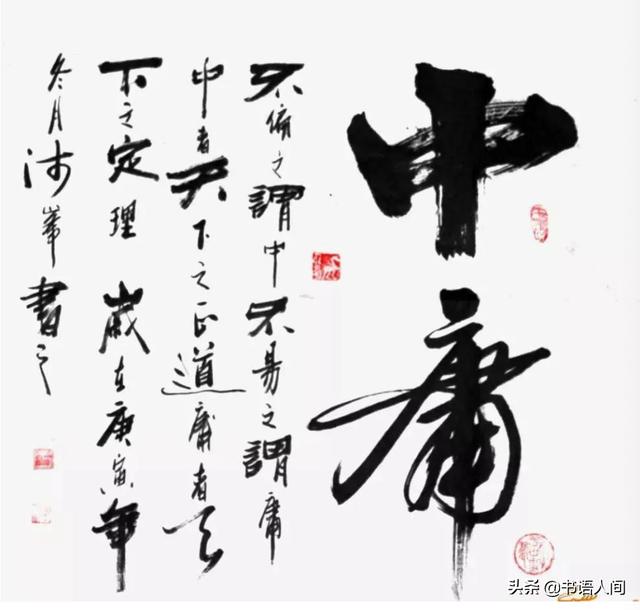 中庸
不偏之謂中不易之謂庸
中者天下之正道庸者天
下之定理 歲在庚寅年
冬月沛峯書之
头条 @书语人间